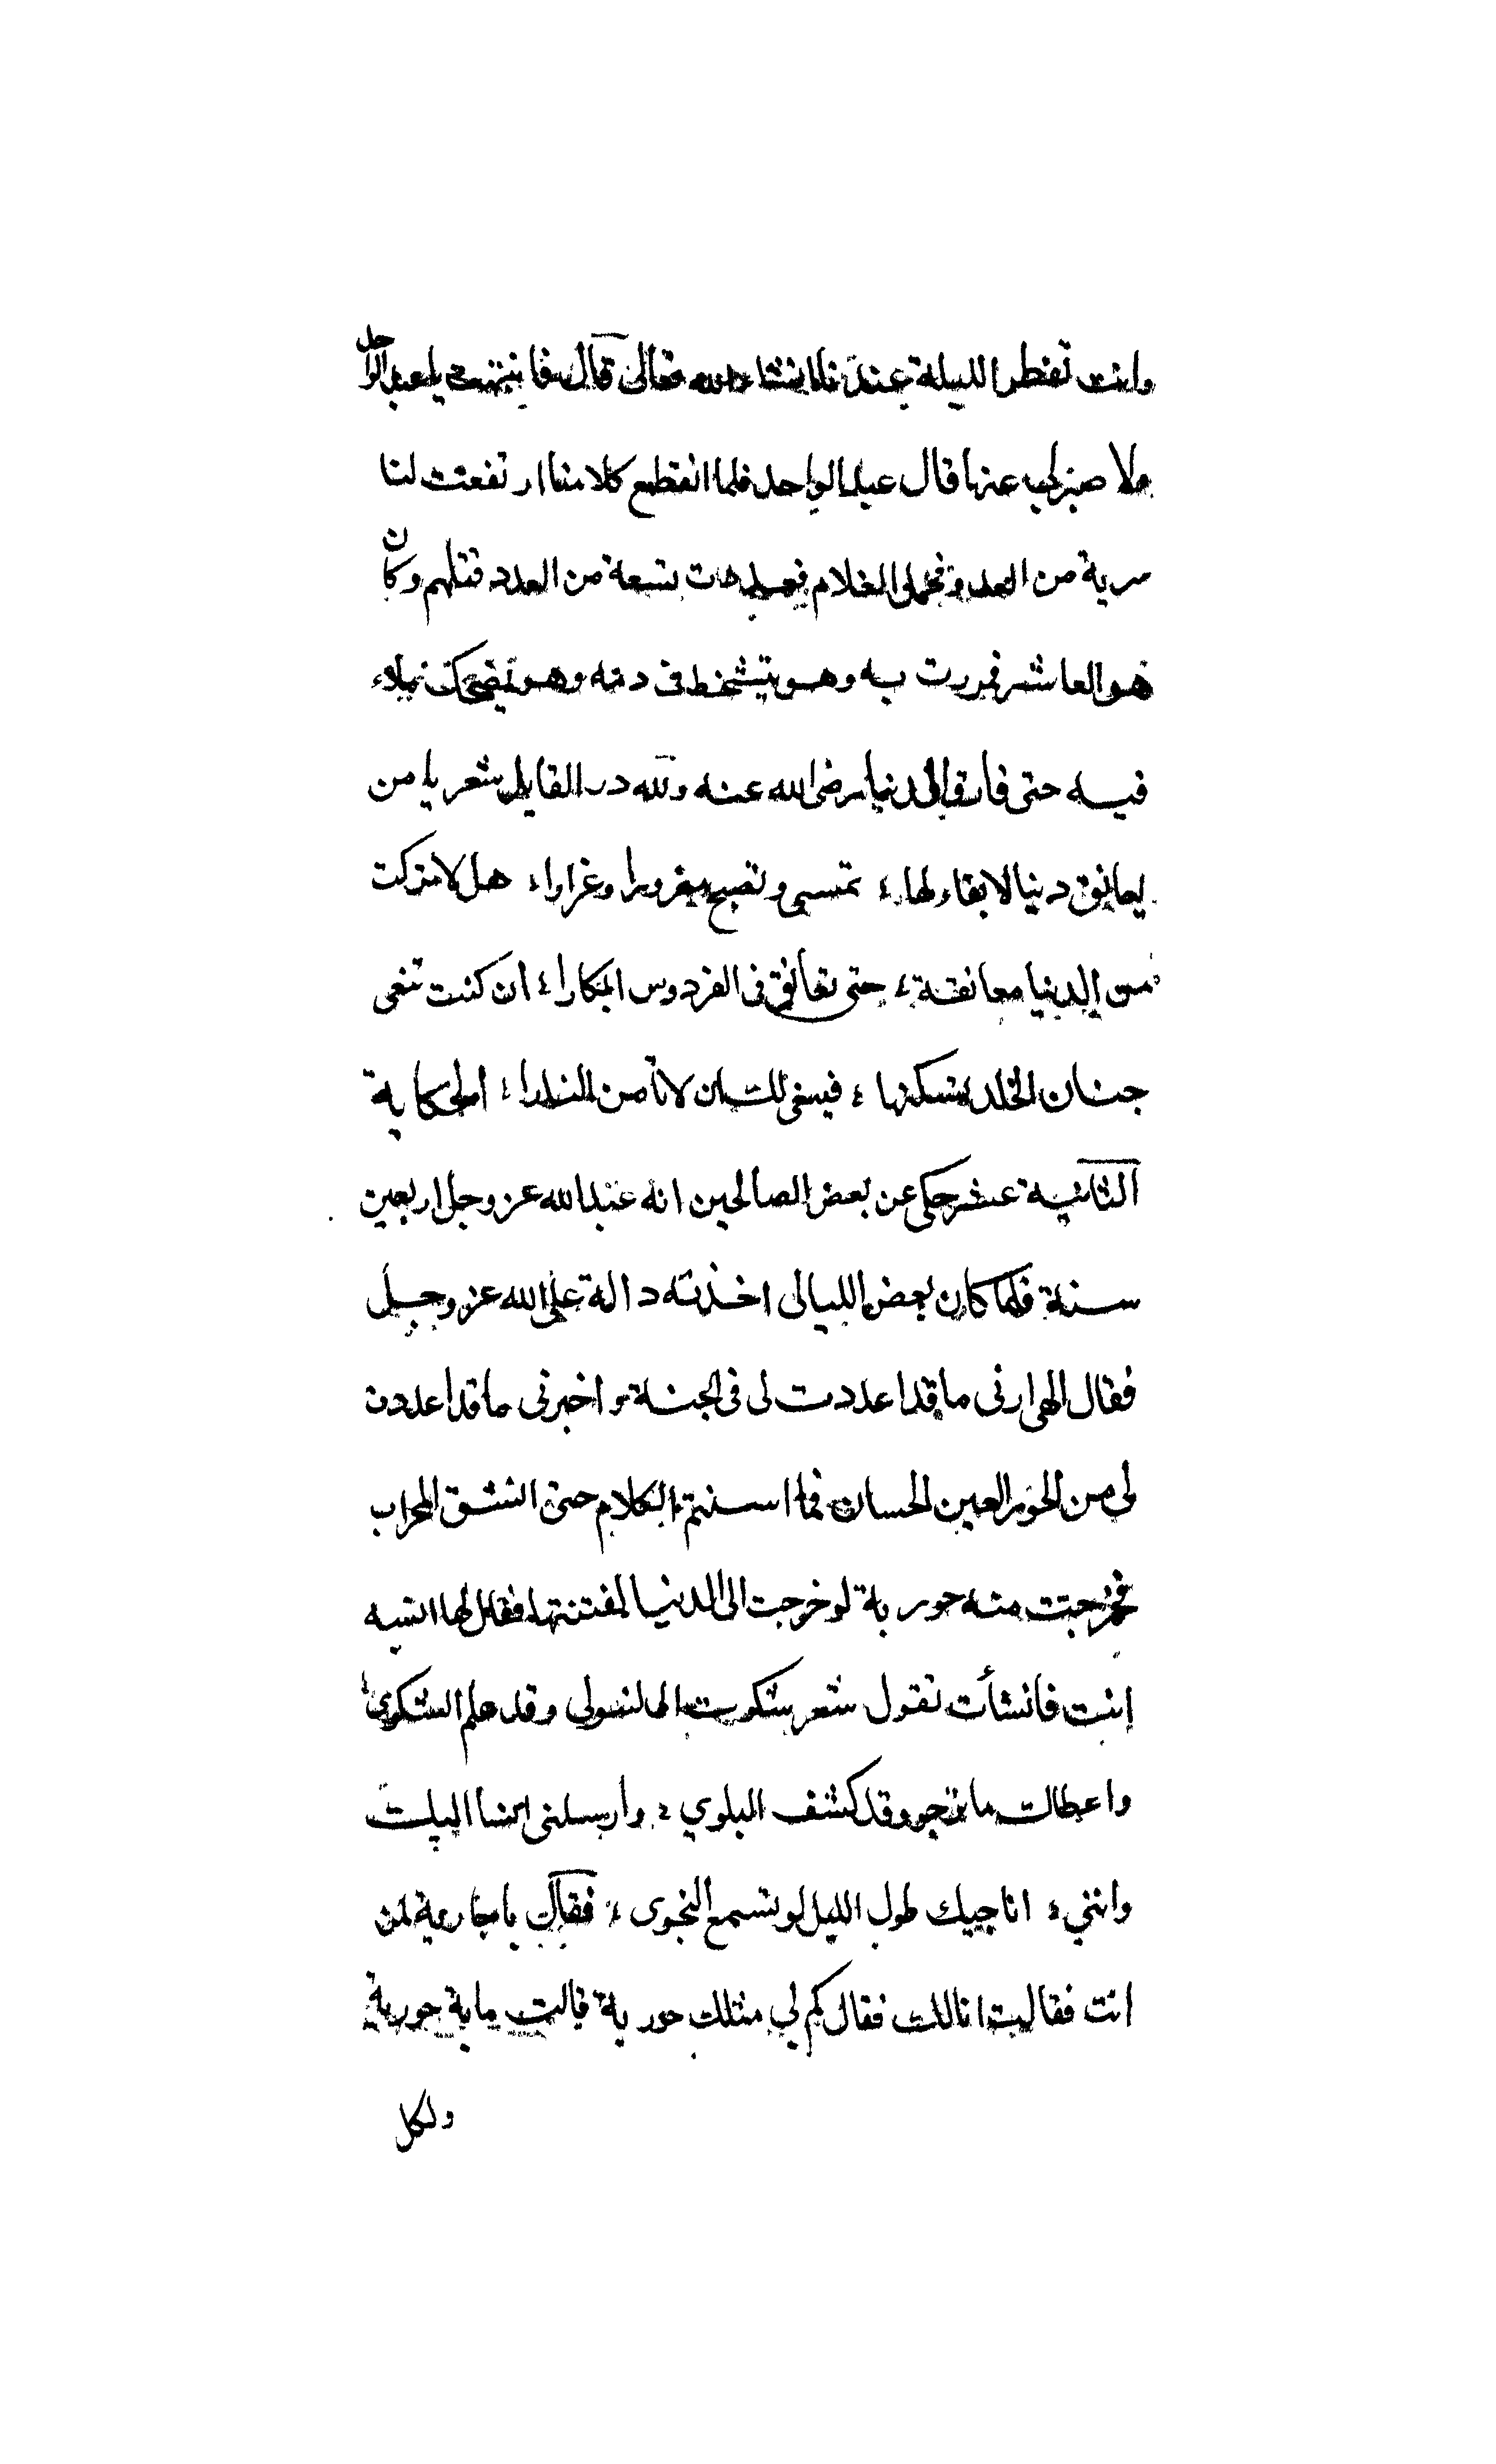 وانت تفطر الليلة عندنا انشاء الله تعالى قال فانتبهت يا عبد الواحد
ولا صبر لي عنها قال عبد الواحد فلما انقطع كلامنا ارتفعت لنا
سرية من العدو فحمل الغلام فعددت تسعة من العدد قتلهم وكان
هو العاشر فمررت به وهو يتشخط فى دمه وهو يضحك بملاء
فيه حتى فارق الدنيا رضى الله عنه ولله در القايل شعر يا من
يعانق دنيا لا بقاء لها ؛ تمسي وتصبح مغرورا وغرارا ؛ هل لا تركت
من الدنيا معانقة ؛ حتى تعانق فى الفردوس ابكارا ؛ ان كنت تبغى
جنان الخلد تسكنها ؛ فينبغى لك ان لا تأمن النارا ؛ الحكاية
الثانية عشر حكى عن بعض الصالحين انه عبد الله عز وجل اربعين
سنة فلما كان بعض الليالى اخذته دالة على الله عز وجل
فقال الهى ارنى ما قد اعددت لى فى الجنة واخبرنى ما قد اعددت
لى من الحور العين الحسان فما استتم الكلام حتى انشق المحراب
فخرجت منه حورية لو خرجت الى الدنيا لفتنتها فقال لها انسيه
انت فانشأت تقول شعر شكوت الى المولى وقد علم الشكوى ؛
واعطاك ما ترجو وقد كشف البلوي ؛ وارسلنى انسا اليك
وانني ؛ اناجيك طول الليل لو تسمع النجوى ؛ فقال يا جارية لمن
انت فقالت انا لك فقال كم لي مثلك حورية قالت ماية حورية
ولكل